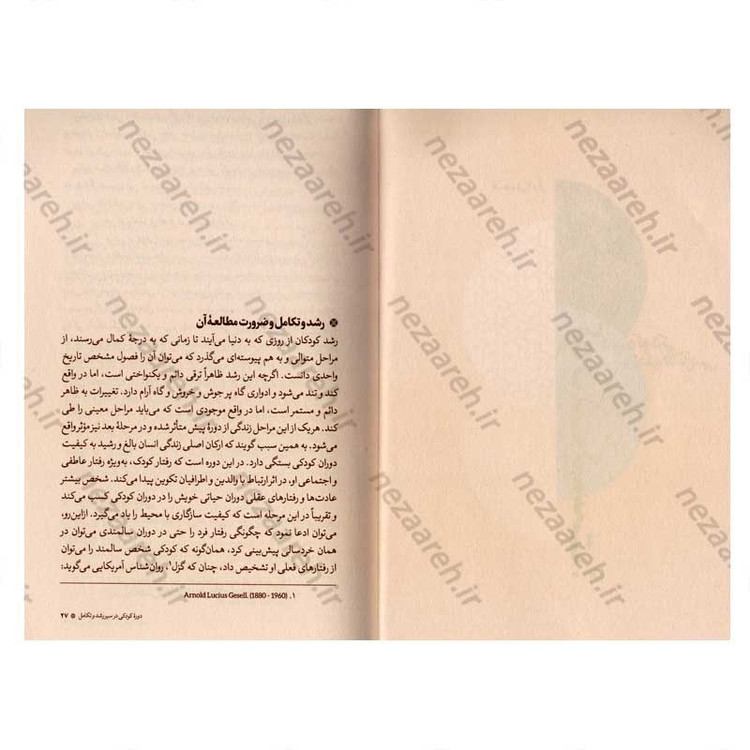 رشد و تکامل و ضرورت مطالعهٔ آن
رشد کودکان از روزی که به دنیا می‌آیند تا زمانی که به درجهٔ کمال می‌رسند، از
مراحل متوالی و به هم پیوسته‌ای می‌گذرد که می‌توان آن را فصول مشخص تاریخ
واحدی دانست. اگرچه این رشد ظاهراً ترقی دائم و یکنواختی است، اما در واقع
کند و تند می‌شود و ادواری گاه پر جوش و خروش و گاه آرام دارد. تغییرات به ظاهر
دائم و مستمر است، اما در واقع موجودی است که می‌باید مراحل معینی را طی
کند. هر یک از این مراحل زندگی از دورهٔ پیش متأثر شده و در مرحلهٔ بعد نیز مؤثر واقع
می‌شود. به همین سبب گویند که ارکان اصلی زندگی انسان بالغ و رشید به کیفیت
دوران کودکی بستگی دارد. در این دوره است که رفتار کودک، به‌ویژه رفتار عاطفی
و اجتماعی او، در اثر ارتباط با والدین و اطرافیان تکوین پیدا می‌کند. شخص بیشتر
عادت‌ها و رفتارهای عقلی دوران حیاتی خویش را در دوران کودکی کسب می‌کند
و تقریباً در این مرحله است که کیفیت سازگاری با محیط را یاد می‌گیرد. ازاین‌رو،
می‌توان ادعا نمود که چگونگی رفتار فرد را حتی در دوران سالمندی می‌توان در
همان خردسالی پیش‌بینی کرد، همان‌گونه که کودکی شخص سالمند را می‌توان
از رفتارهای فعلی او تشخیص داد، چنان که گزل۱، روان‌شناس آمریکایی می‌گوید:
۱. Arnold Lucius Gesell. (1880 - 1960)
دورهٔ کودکی در سیر رشد و تکامل ۲۷
nezaareh.ir
nezaareh.ir
nezaareh.ir
nezaareh.ir
nezaareh.ir
nezaareh.ir
nezaareh.ir
nezaareh.ir
nezaareh.ir
nezaareh.ir
nezaareh.ir